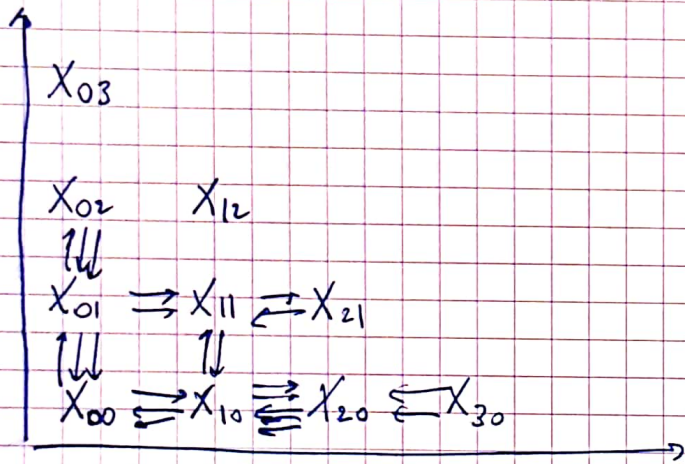 X03
X02 X12
X01 X11 X21
X00 X10 X20 X30